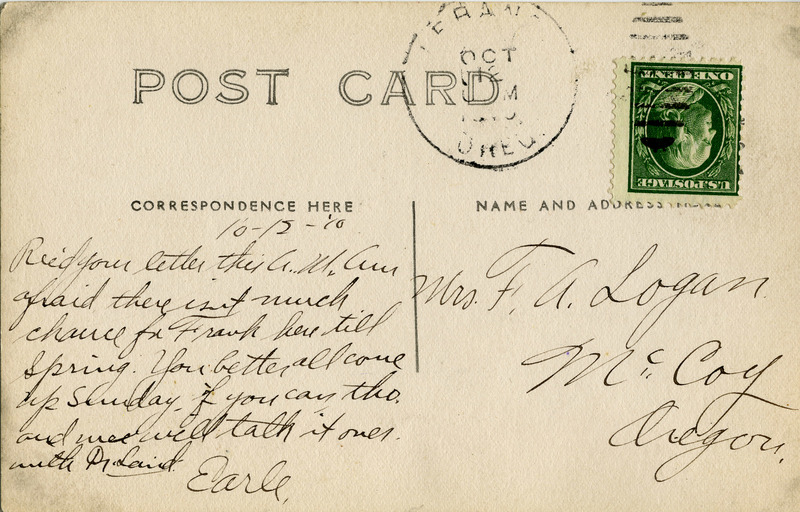 POST CARD
OCT
12
M
1910
OREG.
ONE CENT
U.S. POSTAGE
CORRESPONDENCE HERE
NAME AND ADDRESS HERE
10-12-10
Rec'd your letter this A.M. Am
afraid there isn't much
chance for Frank here till
Spring. You better all come
up Sunday if you can tho.
and we will talk it over
with Laird.
Earle.
Mrs. F. A. Logan
McCoy
Oregon.